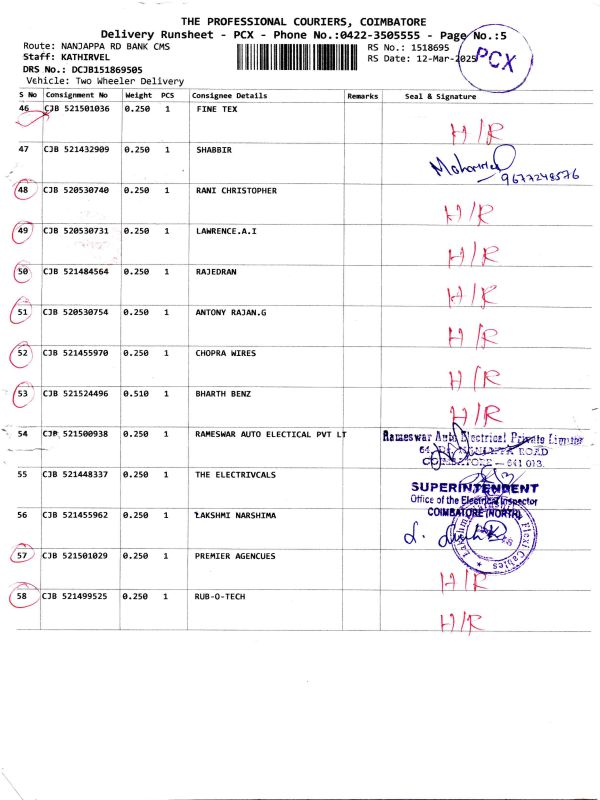 THE PROFESSIONAL COURIERS, COIMBATORE
Delivery Runsheet - PCX - Phone No.:0422-3505555 - Page No.:5
Route: NANJAPPA RD BANK CMS
RS No.: 1518695
Staff: KATHIRVEL
RS Date: 12-Mar-2025
PCX
DRS No.: DCJB151869505
Vehicle: Two Wheeler Delivery
S No Consignment No Weight PCS Consignee Details Remarks Seal & Signature
46 CJB 521501036 0.250 1 FINE TEX
H/R
47 CJB 521432909 0.250 1 SHABBIR
9677248576
48 CJB 520530740 0.250 1 RANI CHRISTOPHER
H/R
49 CJB 520530731 0.250 1 LAWRENCE.A.I
H/R
50 CJB 521484564 0.250 1 RAJEDRAN
H/R
51 CJB 520530754 0.250 1 ANTONY RAJAN.G
H/R
52 CJB 521455970 0.250 1 CHOPRA WIRES
H/R
53 CJB 521524496 0.510 1 BHARTH BENZ
H/R
54 CJB 521500938 0.250 1 RAMESWAR AUTO ELECTICAL PVT LT
Rameswar Auto Electrical Private Limited
ROAD
COIMBATORE - 641 013.
55 CJB 521448337 0.250 1 THE ELECTRIVCALS
SUPERINTENDENT
Office of the Electrical Inspector
COIMBATORE (NORTH)
56 CJB 521455962 0.250 1 LAKSHMI NARSHIMA
Flexi Cables
57 CJB 521501029 0.250 1 PREMIER AGENCUES
H/R
58 CJB 521499525 0.250 1 RUB-O-TECH
H/R